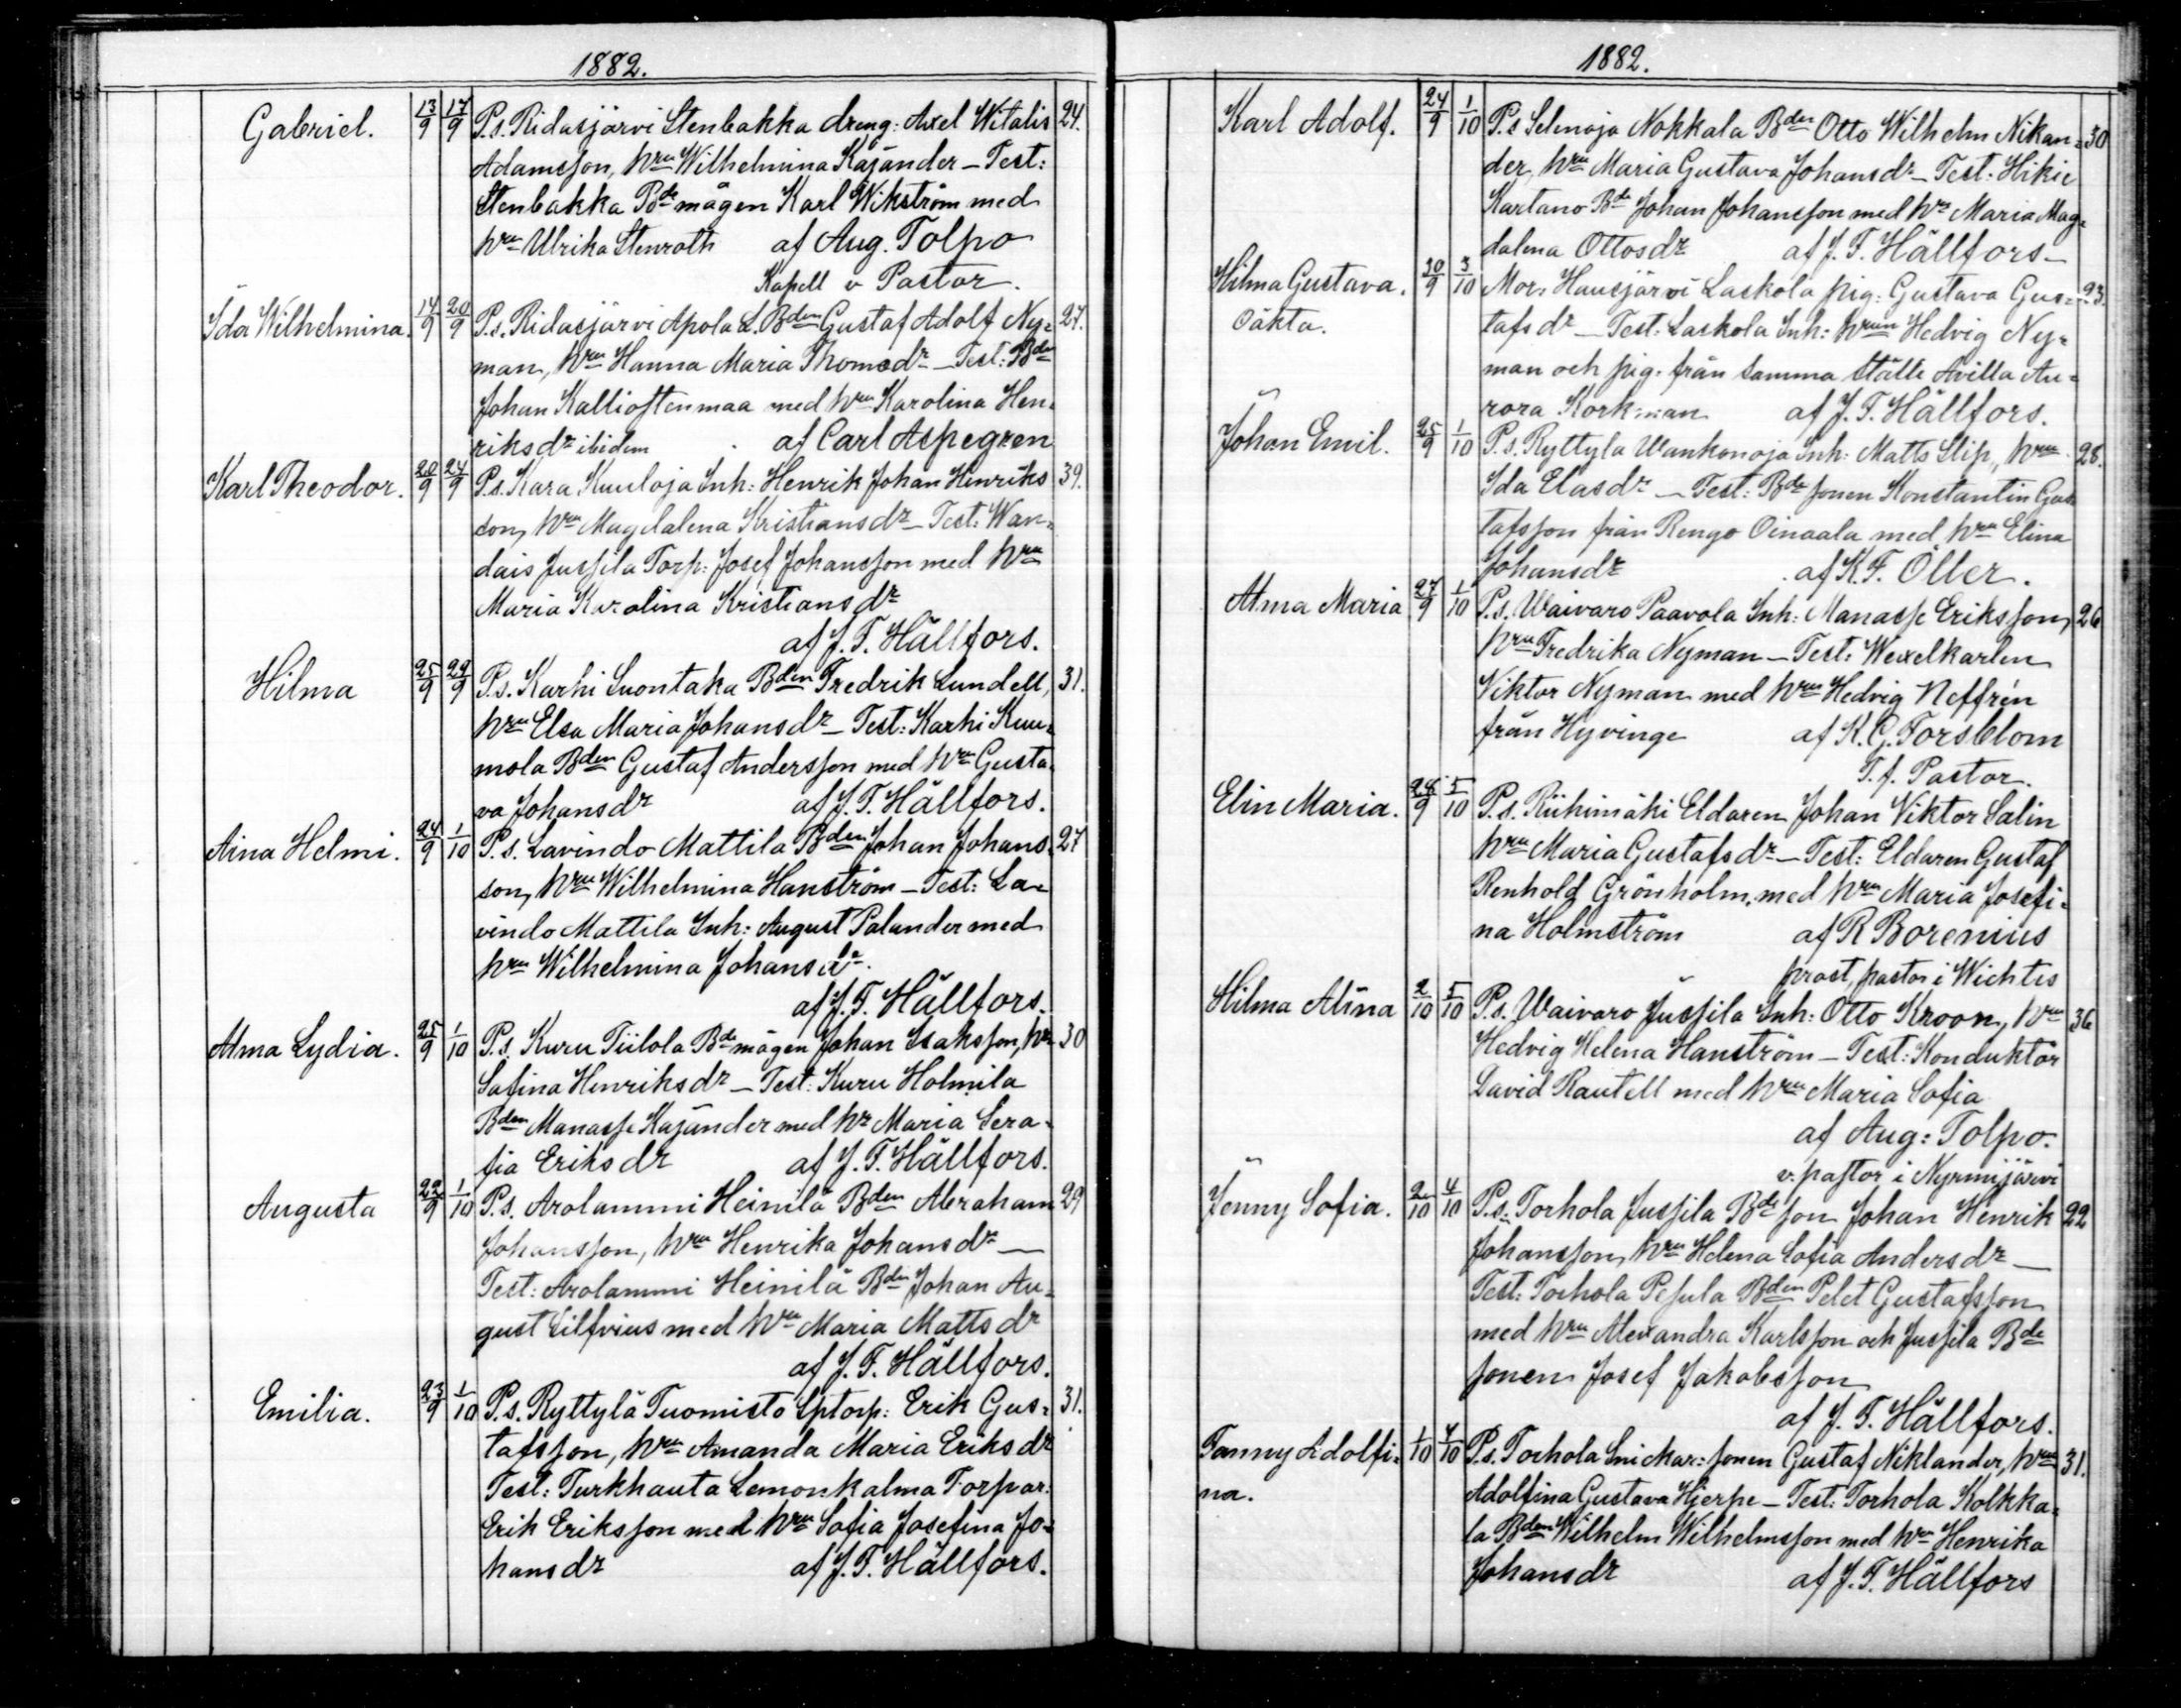 1882.
Gabriel. 13/9 17/9 P.s. Ridasjärvi Stenbakka dreng: Axel Witalis 24.
Adamsson, hru Wilhelmina Kajander – Test:
Stenbakka Bde mågen Karl Wikström med
hru Ulrika Stenroth af Aug. Tolpo
Kapell v Pastor.
Ida Wilhelmina. 14/9 20/9 P.s. Ridasjärvi Apola L. Bden Gustaf Adolf Ny= 27.
man, hru Hanna Maria Thomsdr – Test: Bden
Johan Kallioistenmaa med hru Karolina Hen=
riksdr ibidem af Carl Aspegren
Karl Theodor. 20/9 24/9 P.s. Kara Kuuloja Inh: Henrik Johan Henriks 39.
son, hru Magdalena Kristiansdr – Test: Wan=
dais Jussila Torp: Josef Johansson med hru
Maria Karolina Kristiansdr
af J. F. Hällfors.
Hilma 25/9 29/9 P.s. Karhi Suontaka Bden Fredrik Lundell, 31.
hru Elsa Maria Johansdr – Test: Karhi Kuu=
mola Bden Gustaf Andersson med hru Gusta=
va Johansdr af J. F. Hällfors.
Aina Helmi. 24/9 1/10 P.s. Lavindo Mattila Bden Johan Johans= 27
son, hru Wilhelmina Hanström – Test: La=
vindo Mattila Inh: August Palander med
hru Wilhelmina Johansdr.
af J. F. Hällfors.
Alma Lydia. 25/9 1/10 P.s. Kuru Tiilola Bde mågen Johan Isaksson, hr 30
Safina Henriksdr – Test: Kuru Holmila
Bden Manasse Kajander med hr Maria Sera=
fia Eriksdr af J. F. Hällfors.
Augusta 22/9 1/10 P.s. Arolammi Heinilä Bden Abraham 29
Johansson, hru Henrika Johansdr –
Test: Arolammi Heinilä Bde Johan Au=
gust Silfvius med hru Maria Mattsdr
af J. F. Hällfors.
Emilia. 23/9 1/10 P.s. Ryttylä Tuomisto Sptorp: Erik Gus= 31.
tafsson, hru Amanda Maria Eriksdr
Test: Turkhauta Lemonkalma Torpar:
Erik Eriksson med hru Sofia Josefina Jo=
hansdr af J. F. Hällfors.
1882.
Karl Adolf. 24/9 1/10 P.s Selinoja Nokkala Bden Otto Wilhelm Nikan= 30
der, hru Maria Gustava Johansdr – Test: Hikie
Kartano Bde Johan Johansson med hru Maria Mag=
dalena Ottosdr af J. F. Hällfors –
Hilma Gustava. 30/9 3/10 Mor: Hausjärvi Laskola pig: Gustava Gus= 23.
oäkta. tafsdr – Test: Laskola Inh: hrun Hedvig Ny=
man och pig. från samma ställe Avilla Au=
rora Korkman af J. F. Hällfors.
Johan Emil. 25/9 1/10 P.s. Ryttyla Wankonoja Inh: Matts Slip, hru 28.
Ida Elasdr – Test: Bde sonen Konstantin Gus
tafsson från Rengo Oinaala med hru Elina
Johansdr af K. F. Öller.
Alma Maria 27/9 1/10 P.s. Waivaro Paavola Inh: Manasse Eriksson, 26
hru Fredrika Nyman – Test: Wexelkarlen
Viktor Nyman med hru Hedvig Neffrén
från Hyvinge af K. G. Forsblom
T. f. Pastor.
Elin Maria. 28/9 5/10 P.s. Riihimäki Eldaren Johan Viktor Salin
hru Maria Gustafsdr – Test: Eldaren Gustaf
Renhold Grönholm, med hru Maria Josefi=
na Holmström af R Borenius
prost, pastor i Wichtis
Hilma Alina 2/10 5/10 P.s. Waivaro Jussila Inh: Otto Kroon, hru 36
Hedvig Helena Hanström – Test: Konduktör
David Rautell med hru Maria Sofia
af Aug: Tolpo.
v. pastor i Nurmijärvi
Jenny Sofia. 2/10 4/10 P.s. Torhola Jussila Bde son Johan Henrik 22
Johansson, hru Helena Sofia Andersdr –
Test: Torhola Pesula Bden Pelet Gustafsson
med hru Alexandra Karlsson och Jussila Bde
sonen Josef Jakobsson
af J. F. Hällfors.
Fanny Adolfi= 1/10 4/10 P.s. Torhola Snickar: sonen Gustaf Niklander, hru 31.
na. Adolfina Gustava Hjerpe – Test: Torhola Kolkka=
la Bden Wilhelm Wilhelmsson med hru Henrika
Johansdr af J. F. Hällfors